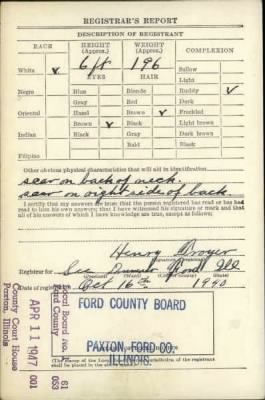 REGISTRAR'S REPORT
DESCRIPTION OF REGISTRANT
RACE HEIGHT (Approx.) WEIGHT (Approx.) COMPLEXION
White ✓ 6 ft 196 Sallow
EYES HAIR Light
Negro Blue Blonde Ruddy ✓
Gray Red Dark
Oriental Hazel Brown ✓ Freckled
Brown ✓ Black Light brown
Indian Black Gray Dark brown
Bald Black
Filipino
Other obvious physical characteristics that will aid in identification
scar on back of neck.
scar on right side of back.
I certify that my answers are true; that the person registered has read or has had
read to him his own answers; that I have witnessed his signature or mark and that
all of his answers of which I have knowledge are true, except as follows:
Henry
Registrar for Ill
Date of registration Oct 16th 1940
FORD COUNTY BOARD
PAXTON, FORD CO.
ILLINOIS.
Local Board No. 1 61
Ford County 053
APR 11 1947 001
County Court House
Paxton, Illinois